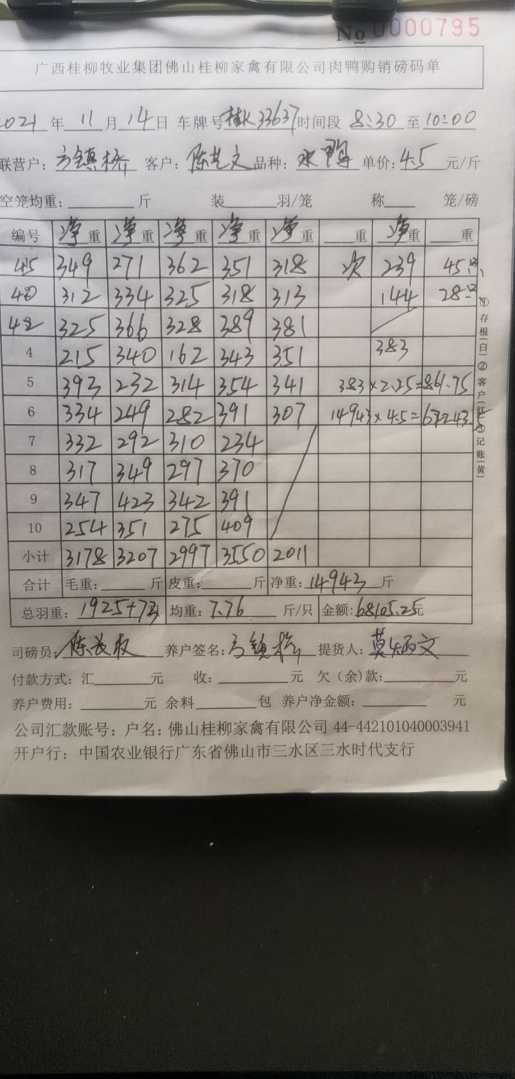 No 0000795
广西桂柳牧业集团佛山桂柳家禽有限公司肉鸭购销磅码单
2021 年 11 月 14 日 车牌号 33637 时间段 8:30 至 10:00
联营户: 方镇桥 客户: 陈艺文 品种: 水鸭 单价: 4.5 元/斤
空笼均重: 斤 装 羽/笼 称 笼/磅
编号 净重 净重 净重 净重 净重 重 净重 重
45 349 271 362 351 318 次 239 45只
40 312 334 325 318 313 144 28只
42 325 366 328 389 381
4 215 340 162 343 351 383
5 393 232 314 354 341 383×2.25=861.75
6 334 249 282 391 307 14943×4.5=67243.5
7 332 292 310 234
8 317 349 297 370
9 347 423 342 391
10 254 351 275 409
小计 3178 3207 2997 3550 2011
合计 毛重: 斤 皮重: 斤 净重: 14943 斤
总羽重: 1925+73 均重: 7.76 斤/只 金额: 68105.25元
司磅员: 陈 权 养户签名: 方镇桥 提货人: 莫 文
付款方式: 汇 元 收: 元 欠(余)款: 元
养户费用: 元 余料 包 养户净金额: 元
公司汇款账号: 户名: 佛山桂柳家禽有限公司 44-442101040003941
开户行: 中国农业银行广东省佛山市三水区三水时代支行
①存根(白)②客户 记账(黄)